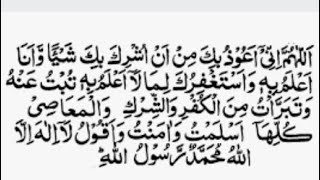 اَللّٰهُمَّ اِنِّیْ اَعُوْذُ بِكَ مِنْ اَنْ اُشْرِكَ بِكَ شَيْئًا وَّاَنَا
اَعْلَمُ بِهٖ وَاَسْتَغْفِرُكَ لِمَا لَا اَعْلَمُ بِهٖ تُبْتُ عَنْهُ
وَتَبَرَّأْتُ مِنَ الْكُفْرِ وَالشِّرْكِ وَالْمَعَاصِیْ
كُلِّهَا اَسْلَمْتُ وَاٰمَنْتُ وَاَقُوْلُ لَاۤ اِلٰهَ اِلَّا
اللّٰهُ مُحَمَّدٌ رَّسُوْلُ اللّٰهِ